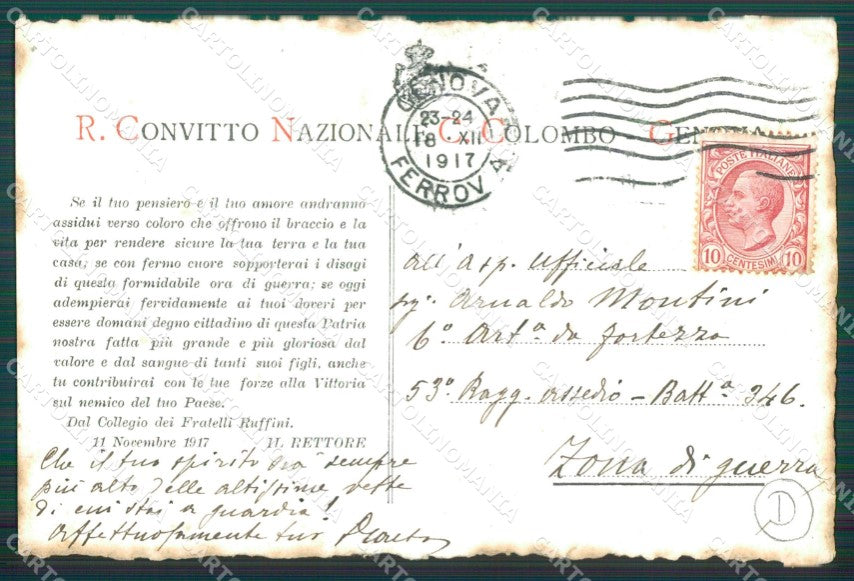 R. CONVITTO NAZIONALE C. COLOMBO GENOVA
GENOVA
23-24
18 XII
1917
FERROVIA
POSTE ITALIANE
10 CENTESIMI 10
Se il tuo pensiero e il tuo amore andranno
assidui verso coloro che offrono il braccio e la
vita per rendere sicure la tua terra e la tua
casa; se con fermo cuore sopporterai i disagi
di questa formidabile ora di guerra; se oggi
adempierai fervidamente ai tuoi doveri per
essere domani degno cittadino di questa Patria
nostra fatta più grande e più gloriosa dal
valore e dal sangue di tanti suoi figli, anche
tu contribuirai con le tue forze alla Vittoria
sul nemico del tuo Paese.
Dal Collegio dei Fratelli Ruffini.
11 Novembre 1917 IL RETTORE
Che il tuo spirito sia sempre
più alto delle altissime vette
di cui stai a guardia!
Affettuosamente tuo
all'Asp. Ufficiale
sig. Arnaldo Montini
6º Artª da fortezza
53º Ragg. assedio - Battª 346.
Zona di guerra
D
CARTOLINOMANIA